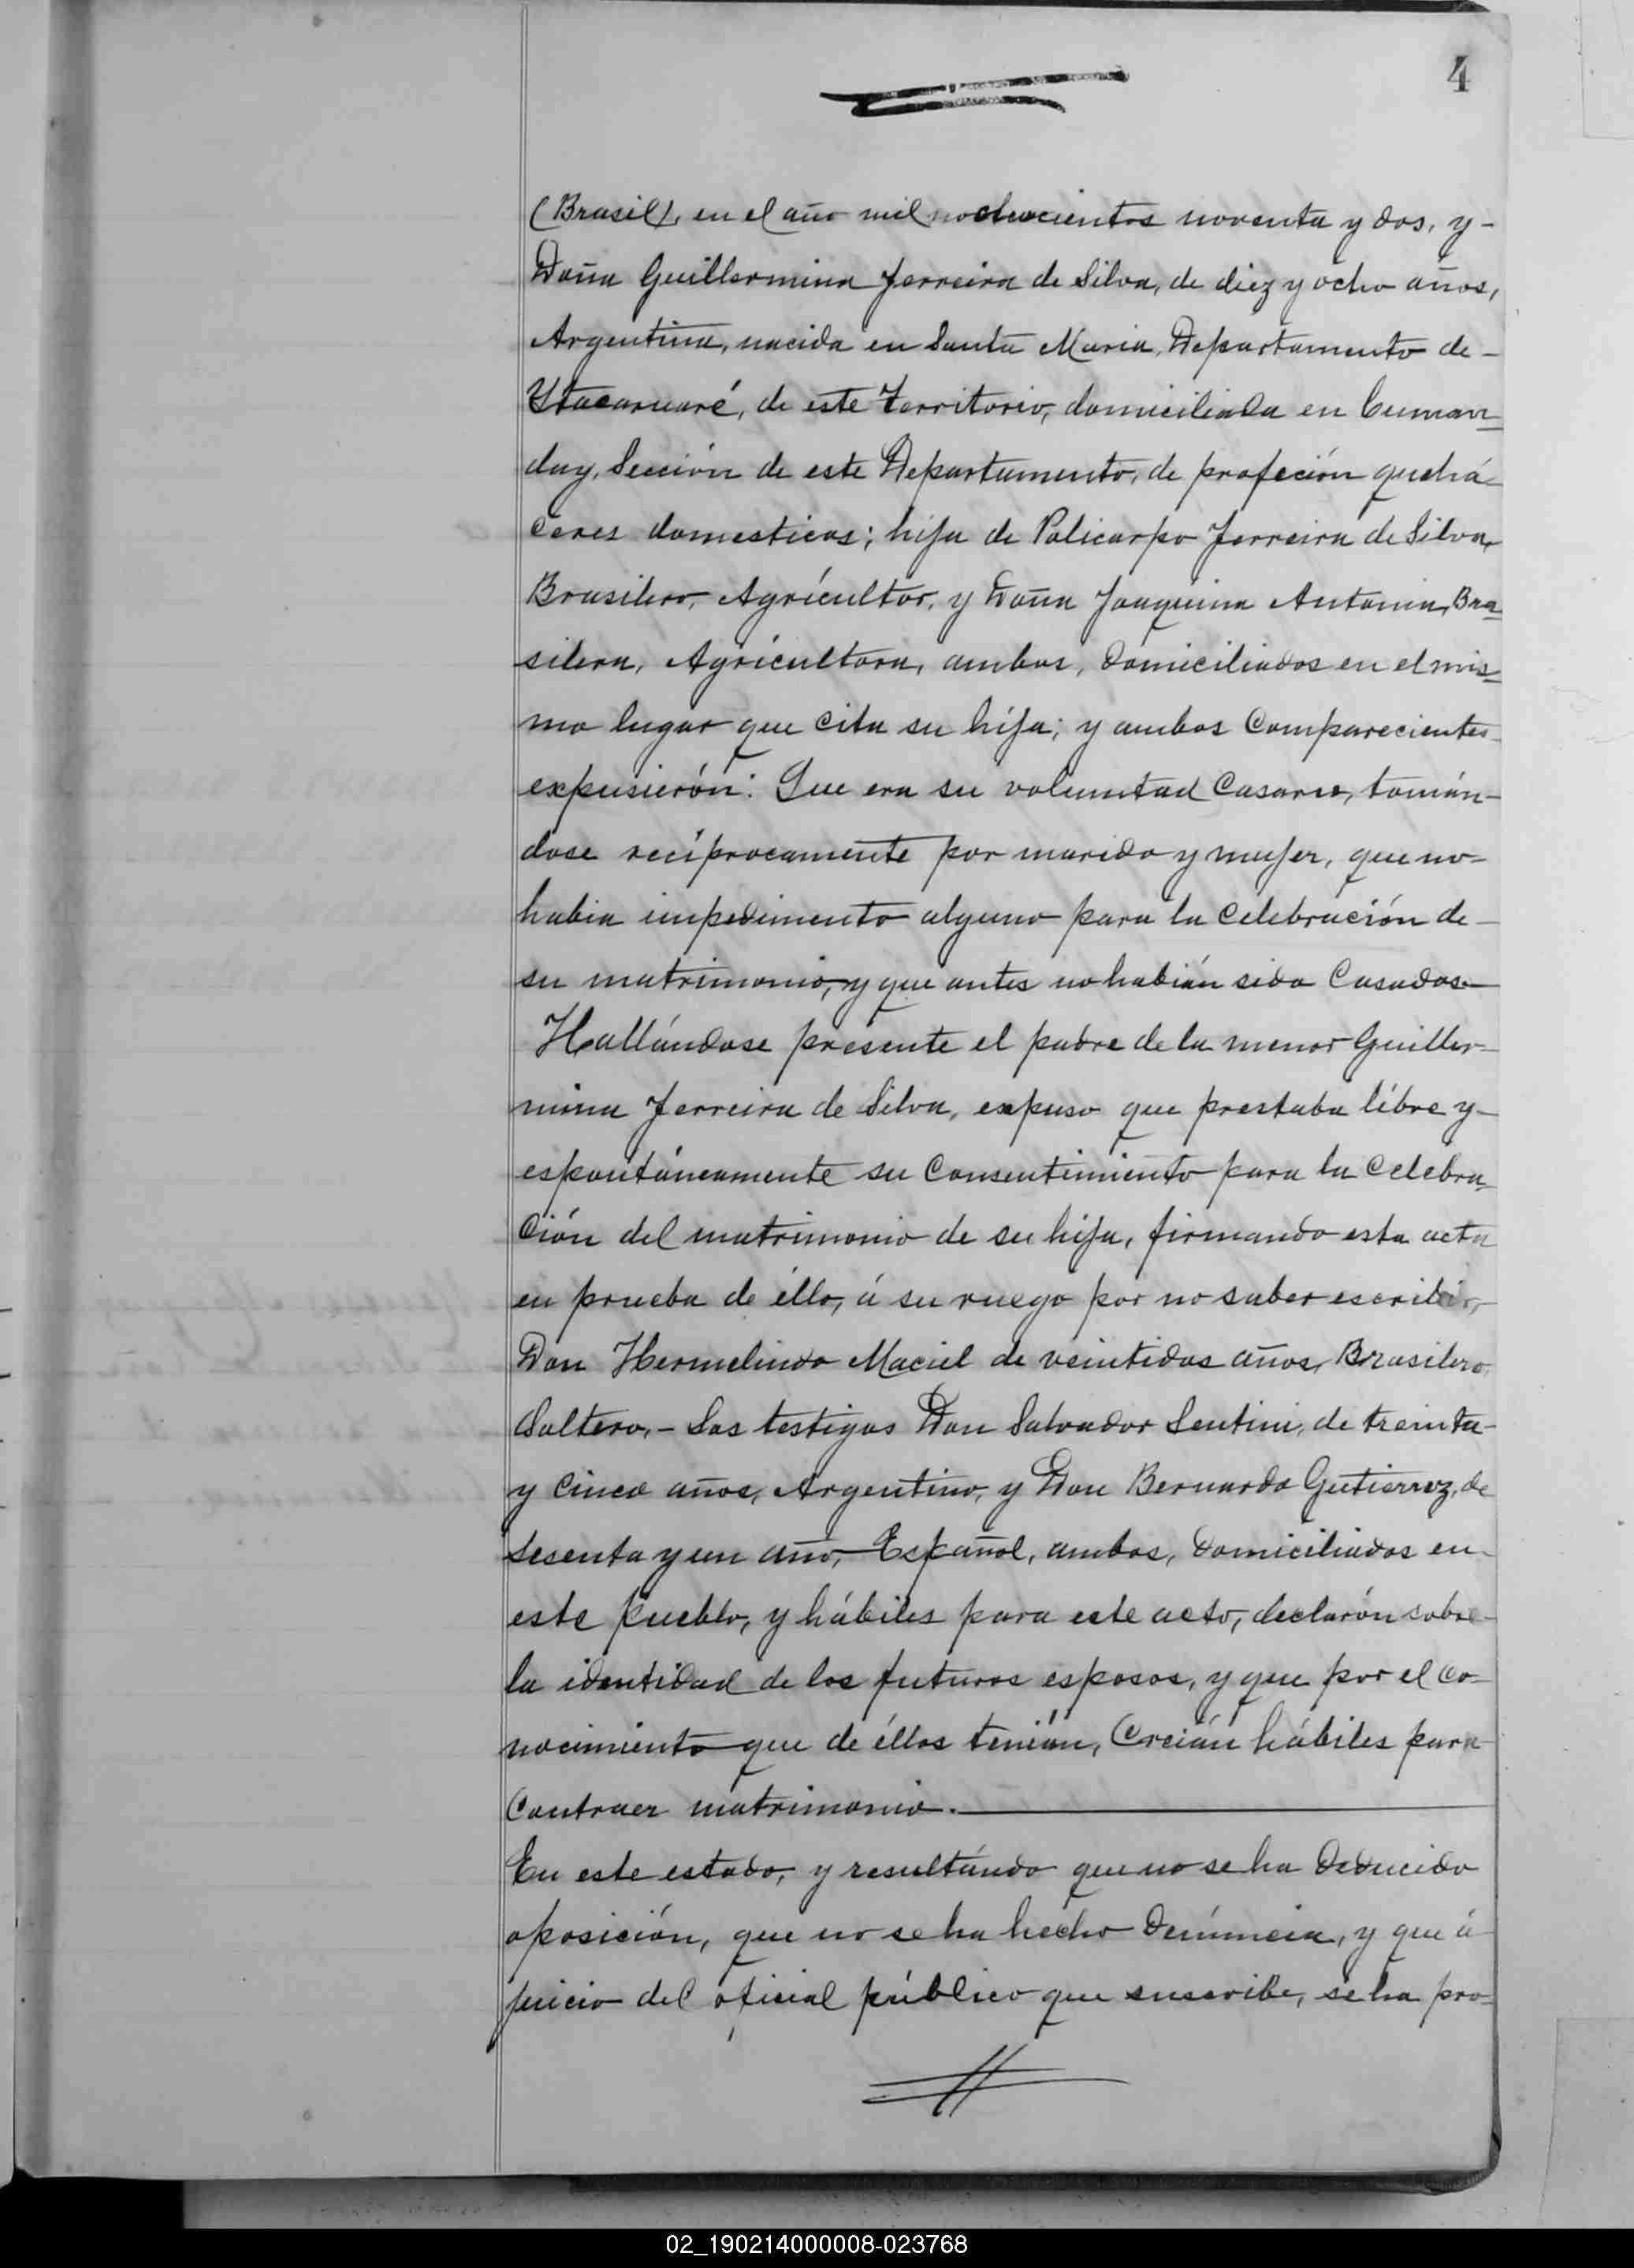 4
(Brasil), en el año mil nochocientos noventa y dos, y-
Doña Guillermina Ferreira de Silva, de diez y ocho años,
Argentina, nacida en Santa Maria, Departamento de-
Ytacaruaré, de este Territorio, domiciliada en Cuman
day, Sección de este Departamento, de profeción quehá-
ceres domesticos; hija de Policarpo Ferreira de Silva,
Brasilero, Agrícultor, y Doña Joaquina Antonia, Bra
silera, Agrícultora, ambos, domiciliados en el mis
mo lugar que cita su hija; y ambos Comparecientes
expusierón: Que era su voluntad Casarse, tomán-
dose recíprocamente por marido y mujer, que no-
habia impedimento alguno para la Celebración de-
su matrimonio, y que antes no habián sido Casados.-
Hallándose présente el padre de la menor Guiller-
mina Ferreira de Silva, expuso que prestaba líbre y-
espontáneamente su Consentimiento para la Celebra
ción del matrimonio de su hija, firmando esta acta
en prueba de éllo, á su ruego por no saber escribir,
Don Hermelindo Maciel de veintidos años, Brasilero,
Soltero.- Los testigos Don Salvador Sentini, de treinta-
y Cinco años, Argentino, y Don Bernardo Gutierrez, de
sesenta y un año, Español, ambos, domiciliados en-
este pueblo, y hábiles para este acto, declarón sobre-
la identidad de los futuros esposos, y que por el co-
nocimiento que de éllos tenián, Creián hábiles para
Contraer matrimonio.
En este estado, y resultándo que no se ha deducido
oposición, que no se ha hecho denúncia, y que á
juicio del oficial público que suscribe, se ha pro-
02_190214000008-023768